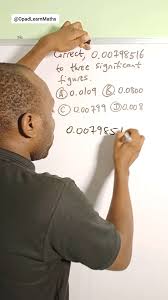 @DpadLearnMaths
Correct, 0.00798516
to three significant
figures.
Ⓐ 0.0109 Ⓑ 0.0800
Ⓒ 0.00799 Ⓓ 0.008
0.0079851